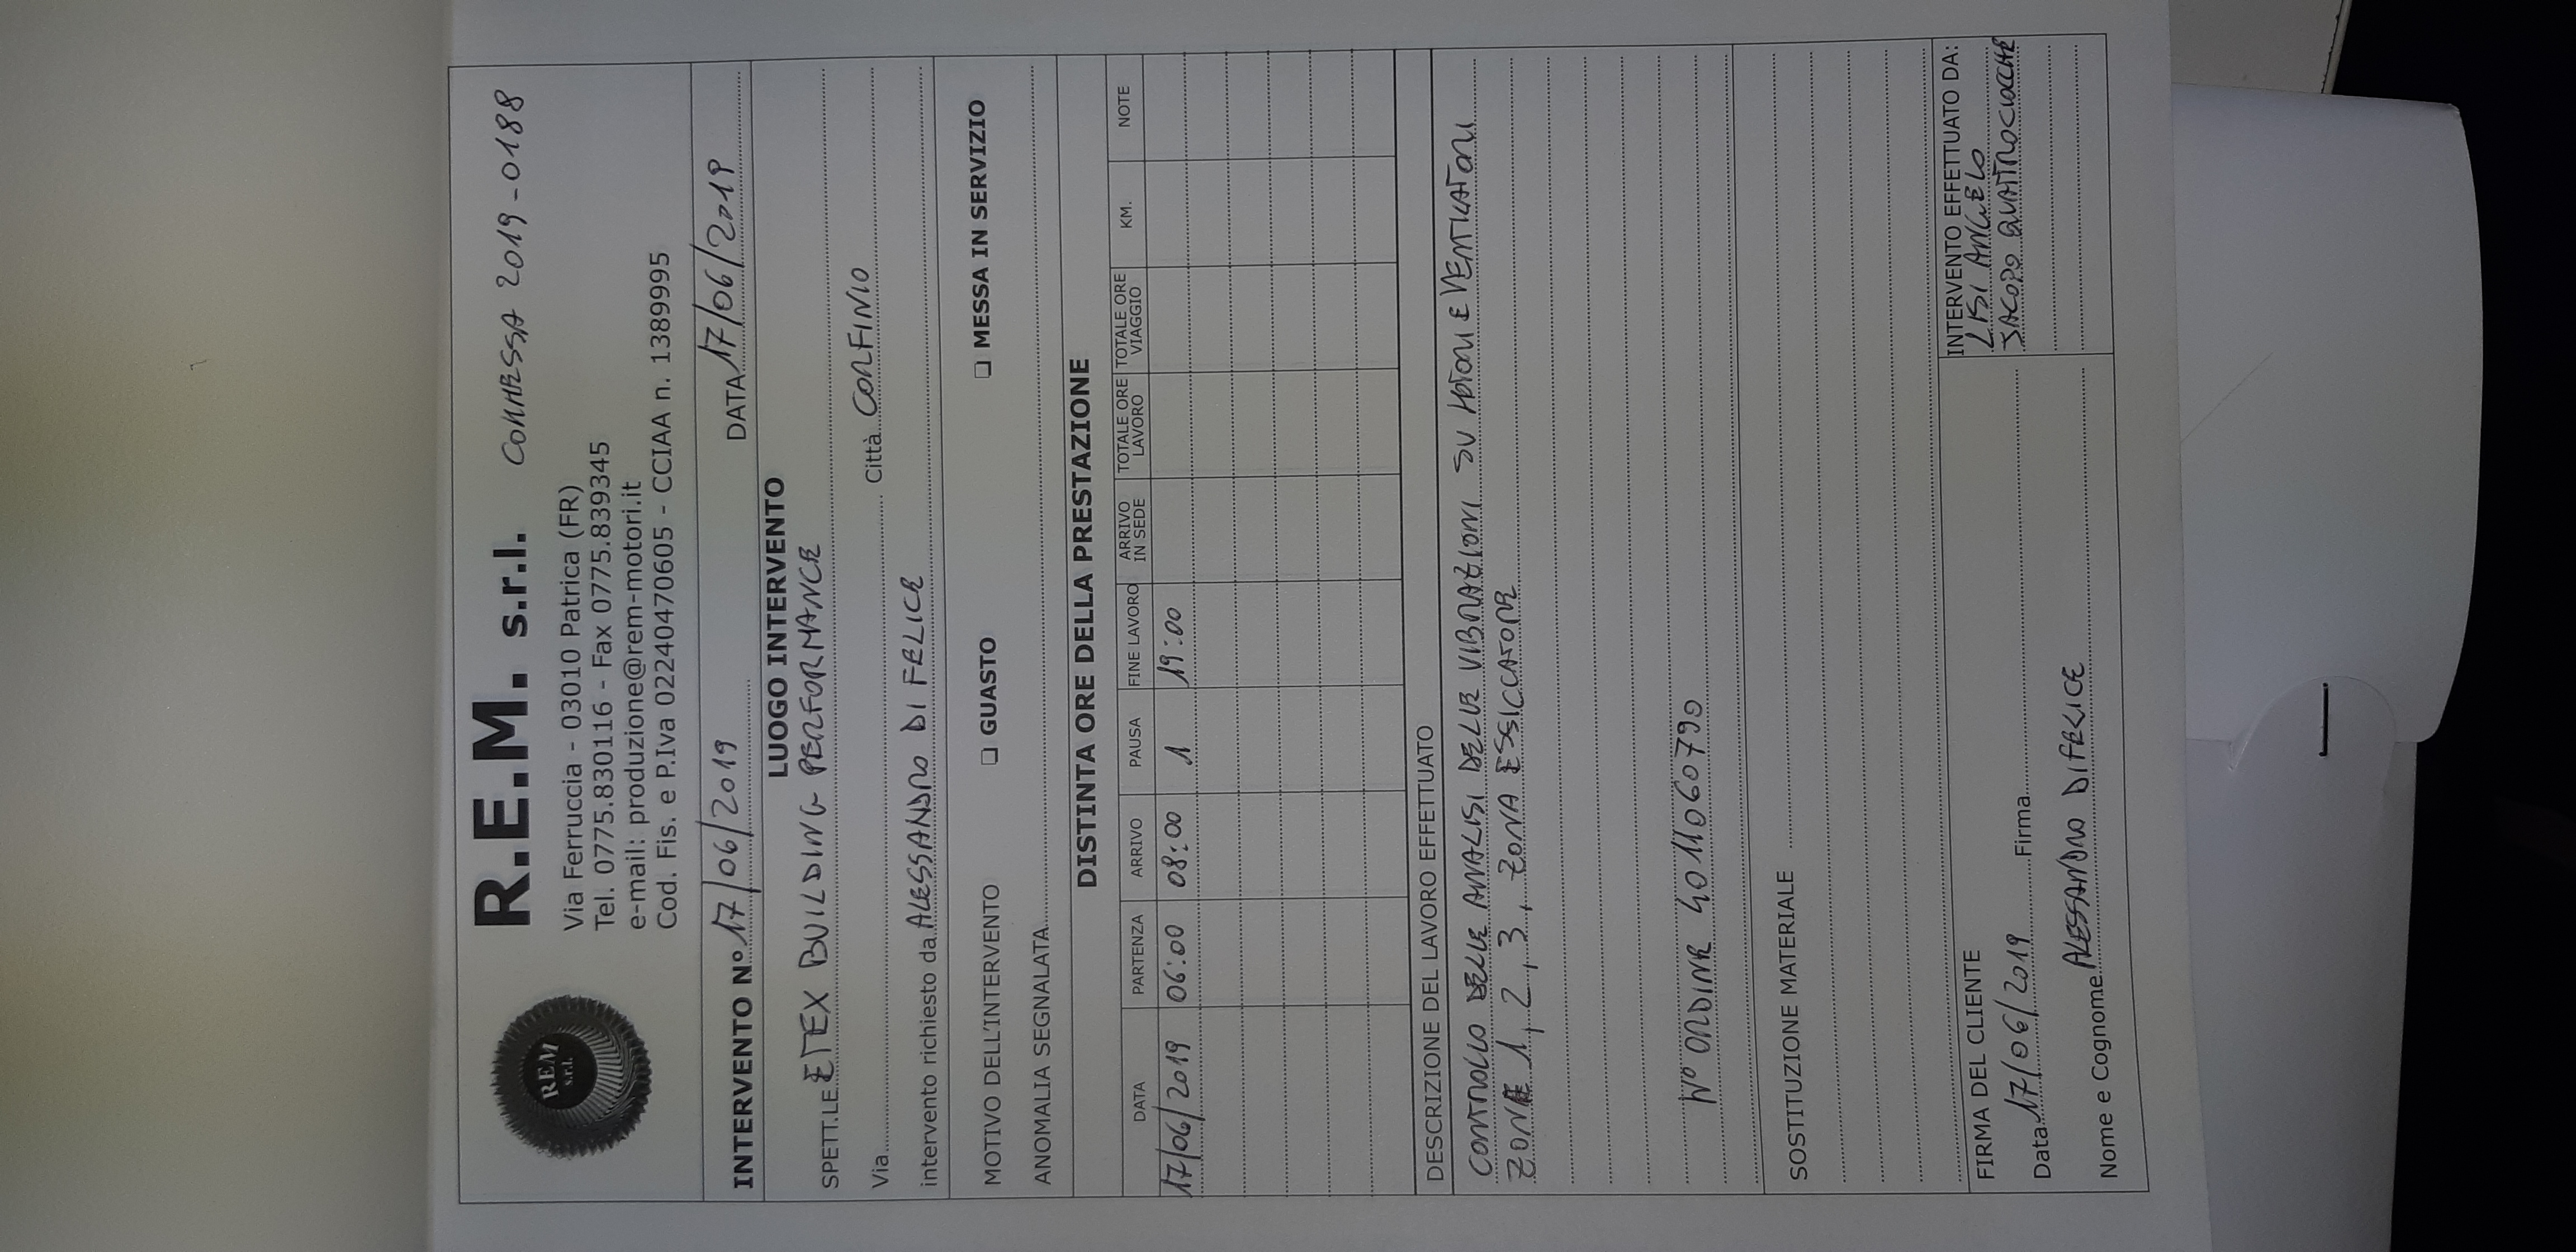 REM
s.r.l.
R.E.M. s.r.l. COMMESSA 2019-0188
Via Ferruccia - 03010 Patrica (FR)
Tel. 0775.830116 - Fax 0775.839345
e-mail: produzione@rem-motori.it
Cod. Fis. e P.Iva 02240470605 - CCIAA n. 1389995
INTERVENTO N° 17/06/2019 DATA 17/06/2019
LUOGO INTERVENTO
SPETT.LE ETEX BUILDING PERFORMANCE
Via Città CORFINIO
intervento richiesto da ALESSANDRO DI FELICE
MOTIVO DELL'INTERVENTO ❑ GUASTO ❑ MESSA IN SERVIZIO
ANOMALIA SEGNALATA
DISTINTA ORE DELLA PRESTAZIONE
DATA PARTENZA ARRIVO PAUSA FINE LAVORO ARRIVO IN SEDE TOTALE ORE LAVORO TOTALE ORE VIAGGIO KM. NOTE
17/06/2019 06:00 08:00 1 19:00
DESCRIZIONE DEL LAVORO EFFETTUATO
CONTROLLO DELLE ANALISI DELLE VIBRAZIONI SU MOTORI E VENTILATORI
ZONE 1, 2, 3, ZONA ESSICCATORE
N° ORDINE 4011060790
SOSTITUZIONE MATERIALE
FIRMA DEL CLIENTE
Data 17/06/2019 Firma
Nome e Cognome ALESSANDRO DI FELICE
INTERVENTO EFFETTUATO DA:
LISI ANGELO
JACOPO QUATTROCIOCCHE